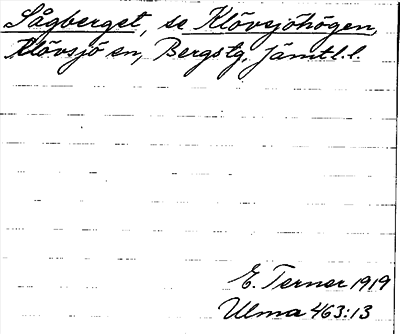 Sågberget, se Klövsjöhögen,
Klövsjö sn, Bergs tg, Jämtl. l.
E. Terner 1919
Ulma 463:13